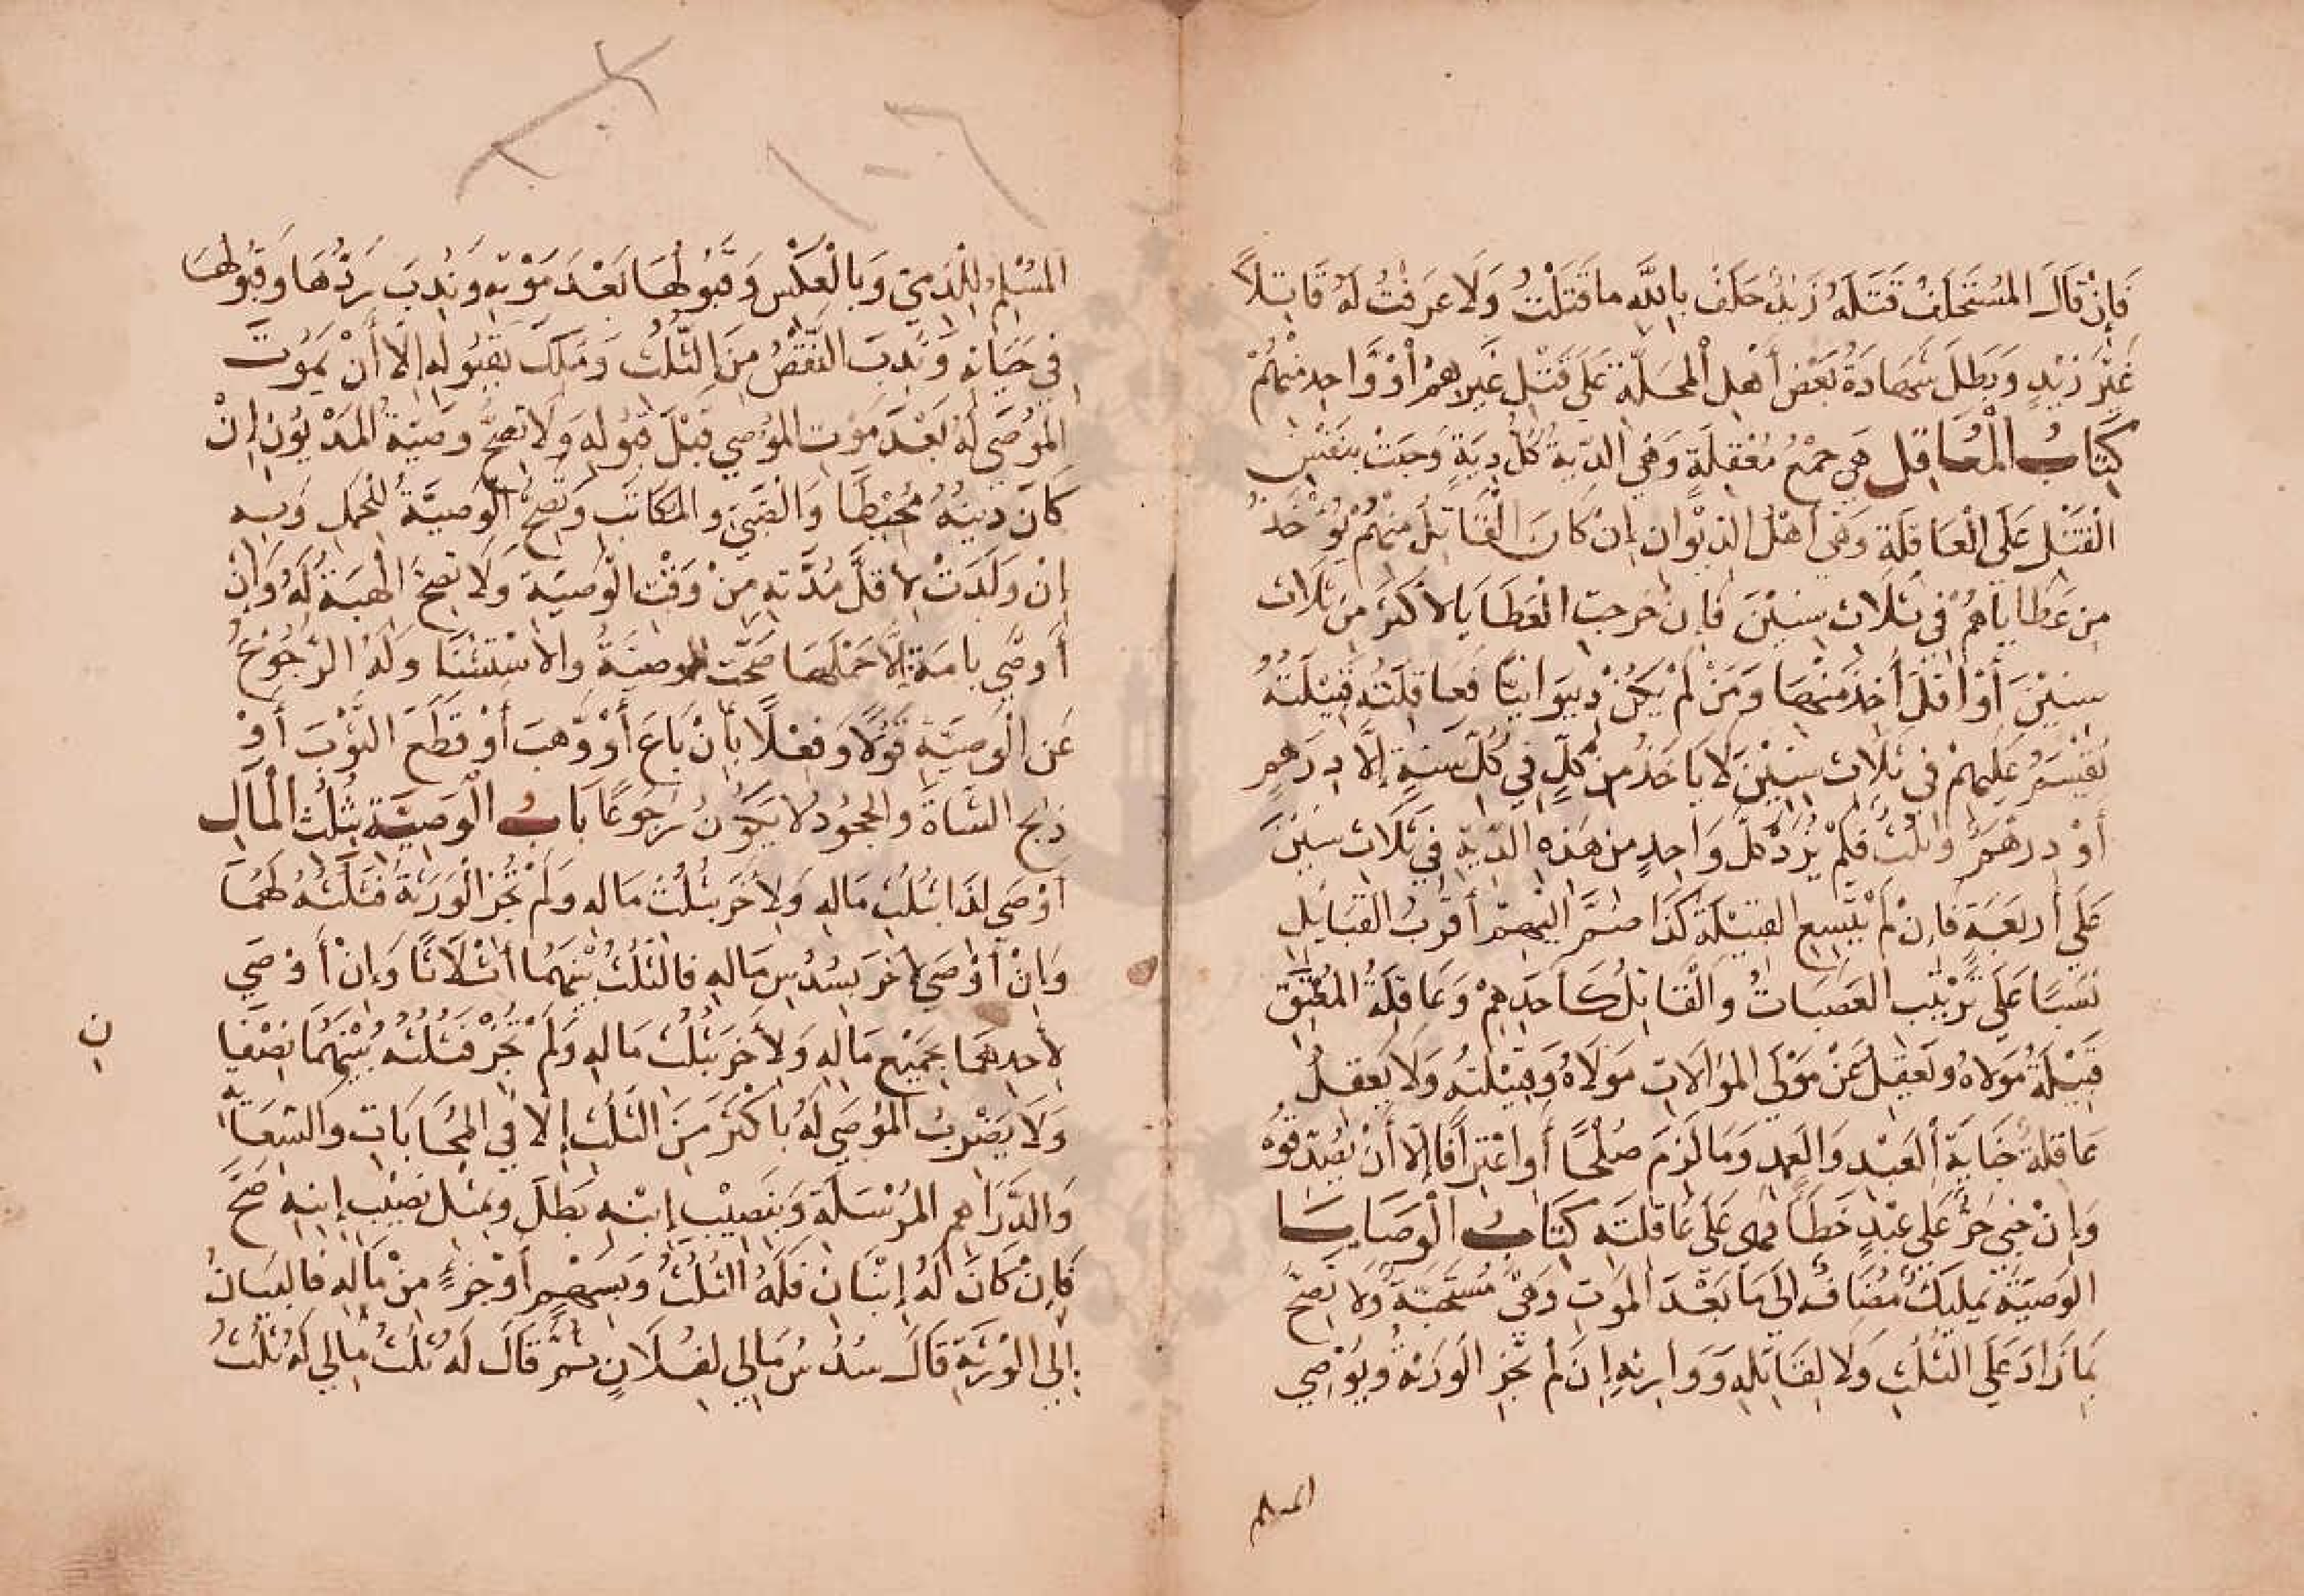 فَإِنْ قَالَ المُسْتَحْلَفُ قَتَلَهُ زَيْدٌ حَلَفَ بِاللَّهِ مَا قَتَلْتُ وَلَا عَرَفْتُ لَهُ قَاتِلًا
غَيْرَ زَيْدٍ وَبَطَلَ شَهَادَةُ بَعْضِ أَهْلِ الْمَحَلَّةِ عَلَى قَتْلِ غَيْرِهِمْ أَوْ وَاحِدٍ مِنْهُمْ
كِتَابُ الْمَعَاقِلِ هِيَ جَمْعُ مَعْقِلَةٍ وَهِيَ الدِّيَةُ كُلُّ دِيَةٍ وَجَبَتْ بِنَفْسِ
الْقَتْلِ عَلَى الْعَاقِلَةِ وَهِيَ أَهْلُ الدِّيْوَانِ إِنْ كَانَ الْقَاتِلُ مِنْهُمْ يُؤْخَذُ
مِنْ عَطَايَاهُمْ فِي ثَلَاثِ سِنِيْنَ فَإِنْ خَرَجَتِ الْعَطَايَا لِأَكْثَرَ مِنْ ثَلَاثِ
سِنِيْنَ أَوْ أَقَلَّ أُخِذَ مِنْهَا وَمَنْ لَمْ يَكُنْ دِيوَانِيًّا فَعَاقِلَتُهُ قَبِيْلَتُهُ
تُقْسَمُ عَلَيْهِمْ فِي ثَلَاثِ سِنِيْنَ لَا يَاخُذُ مِنْ كُلٍّ فِي كُلِّ سَنَةٍ إِلَّا دِرْهَمٌ
أَوْ دِرْهَمٌ وَثُلُثٌ فَلَمْ يَزِدْ كُلُّ وَاحِدٍ مِنْ هَذِهِ الدِّيَةِ فِي ثَلَاثِ سِنِيْنَ
عَلَى أَرْبَعَةٍ فَإِنْ لَمْ يَتَّسِعِ القَبِيْلَةُ كَذَا ضُمَّ إِلَيْهِمْ أَقْرَبُ القَبَايِلِ
نَسَبًا عَلَى تَرْتِيْبِ العَصَبَاتِ وَالْقَاتِلُ كَأَحَدِهِمْ وَعَاقِلَةُ المُعْتَقِ
قَبِيْلَةُ مَوْلَاهُ وَيَعْقِلُ عَنْ مَوْلَى المُوَالَاتِ مَوْلَاهُ وَقَبِيْلَتُهُ وَلَا يَعْقِلُ
عَاقِلَةٌ جِنَايَةَ الْعَبْدِ وَالْعَمْدِ وَمَا لَزِمَ صُلْحًا أَوِ اعْتِرَافًا إِلَّا أَنْ يُصَدِّقُوهُ
وَإِنْ جَنَى حُرٌّ عَلَى عَبْدٍ خَطَأً فَهِيَ عَلَى عَاقِلَتِهِ كِتَابُ الْوَصَايَا
الوَصِيَّةُ تَمْلِيكٌ مُضَافٌ إِلَى مَا بَعْدَ الْمَوْتِ وَهِيَ مُسْتَحَبَّةٌ وَلَا تَصِحُّ
بِمَا زَادَ عَلَى الثُّلُثِ وَلَا لِقَاتِلِهِ وَوَارِثِهِ إِنْ لَمْ تُجِزِ الْوَرَثَةُ وَيُوْصِي
المسلم
المُسْلِمُ لِلذِّمِّيِّ وَبِالْعَكْسِ وَقَبُولُهَا بَعْدَ مَوْتِهِ وَنُدِبَ رَدُّهَا وَقَبُولُهَا
فِي حَيَاتِهِ وَنُدِبَ النَّقْصُ مِنَ الثُّلُثِ وَمَلَكَ بِقَبُولِهِ إِلَّا أَنْ يَمُوْتَ
المُوْصَى لَهُ بَعْدَ مَوْتِ المُوْصِي قَبْلَ قَبُولِهِ وَلَا تَصِحُّ وَصِيَّةُ الْمَدْيُوْنِ إِنْ
كَانَ دَيْنُهُ مُحِيْطًا وَالصَّبِيِّ وَالمُكَاتَبِ وَتَصِحُّ الْوَصِيَّةُ لِلْحَمْلِ وَبِهِ
إِنْ وَلَدَتْ لِأَقَلِّ مُدَّتِهِ مِنْ وَقْتِ الْوَصِيَّةِ وَلَا تَصِحُّ الْهِبَةُ لَهُ وَإِنْ
أَوْصَى بِامَةٍ إِلَّا حَمْلَهَا صَحَّتِ الْوَصِيَّةُ وَالِاسْتِثْنَا وَلَهُ الرُّجُوْعُ
عَنِ الْوَصِيَّةِ قَوْلًا وَفِعْلًا بِأَنْ بَاعَ أَوْ وَهَبَ أَوْ قَطَعَ الثَّوْبَ أَوْ
ذَبَحَ الشَّاةَ وَالْجُحُودُ لَا يَكُوْنُ رُجُوعًا بَابُ الْوَصِيَّةِ بِثُلُثِ الْمَالِ
أَوْصَى لِذَا بِثُلُثِ مَالِهِ وَلِأَخَرَ بِثُلُثِ مَالِهِ وَلَمْ تُجِزِ الْوَرَثَةُ فَثُلُثُهُ لَهُمَا
وَإِنْ أَوْصَى لِأَخَرَ بِسُدُسِ مَالِهِ فَالثُّلُثُ بَيْنَهُمَا أَثْلَاثًا وَإِنْ أَوْصَى
ن
لِأَحَدِهِمَا بِجَمِيْعِ مَالِهِ وَلِأَخَرَ بِثُلُثِ مَالِهِ وَلَمْ تُجِزْ فَثُلُثُهُ بَيْنَهُمَا نِصْفَا
وَلَا يَضْرِبُ الْمُوْصَى لَهُ بِأَكْثَرَ مِنَ الثُّلُثِ إِلَّا فِي الْمُحَابَاتِ وَالسِّعَايَةِ
وَالدَّرَاهِمِ الْمُرْسَلَةِ وَبِنَصِيْبِ إِبْنِهِ بَطَلَ وَبِمِثْلِ نَصِيْبِ إِبْنِهِ صَحَّ
فَإِنْ كَانَ لَهُ إِبْنَانِ فَلَهُ الثُّلُثُ وَبِسَهْمٍ أَوْ جُزْءٍ مِنْ مَالِهِ فَالْبَيَانُ
إِلَى الْوَرَثَةِ قَالَ سُدُسُ مَالِي لِفُلَانٍ ثُمَّ قَالَ لَهُ ثُلُثُ مَالِي لَهُ ثُلُثُ